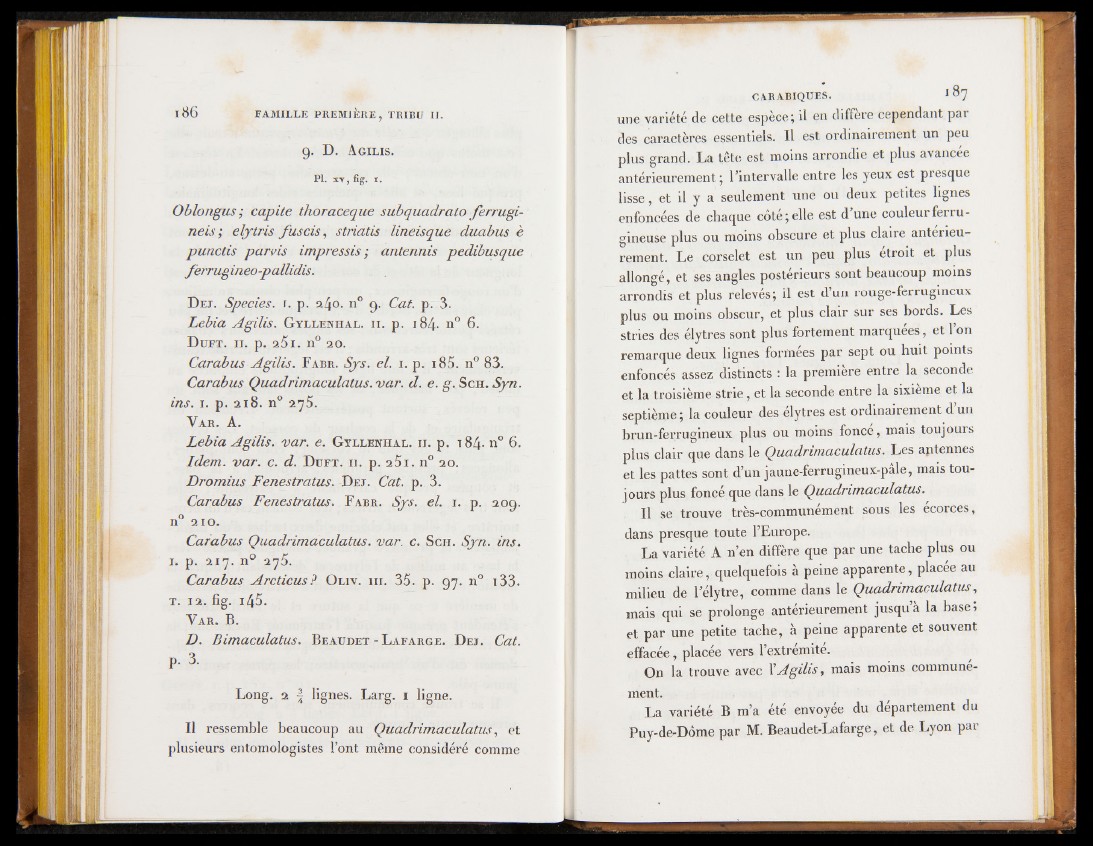 186 FAMILLE PREMIÈRE, TRIBU II.
9. D. AGILIS.
Pl. xv, fig. 1.
Oblongus; capite thoraceque subquadrato ferrugi-
neis; elytris fuscis, striatis lineisque duabus è
punctis parvis impressis; antennis pedibusque
ferrugineo-pallidis.
DEJ. Species. I. p. 240. n° 9. Cat. p. 3.
Lebia Agilis. GYLLENHAL. II. p. 184. n° 6.
DUFT. II. p. 251. n° 20.
Carabus Agilis. FABR. Sys. el. I. p. 185. n° 83.
Carabus Quadrimaculatus. var. d. e. g. SCH. Syn.
ins. I. p. 218. n° 275.
VAR. A.
Lebia Agilis. var. e. GYLLENHAL. II. p. 184. n° 6.
Idem. var. c. d. DUFT. II. p. 251. n° 20.
Dromius Fenestratus. DEJ. Cat. p. 3.
Carabus Fenestratus. FABR. Sys. el. I. p. 209.
n° 210.
Carabus Quadrimaculatus. var. c. SCH. Syn. ins.
I. p. 217. n° 275.
Carabus Arcticus? OLIV. III. 35. p. 97. n° 133.
T. 12. fig. 145.
VAR. B.
D. Bimaculatus. BEAUDET-LAFARGE. DEJ. Cat.
p. 3.
Long. 2 ¾ lignes. Larg. 1 ligne.
Il ressemble beaucoup au Quadrimaculatus, et
plusieurs entomologistes l'ont même considéré comme
CARABIQUES. 187
une variété de cette espèce; il en diffère cependant par
des caractères essentiels. Il est ordinairement un peu
plus grand. La tête est moins arrondie et plus avancée
antérieurement; l'intervalle entre les yeux est presque
lisse, et il y a seulement une ou deux petites lignes
enfoncées de chaque côté; elle est d'une couleur ferru-
gineuse plus ou moins obscure et plus claire antérieu-
rement. Le corselet est un peu plus étroit et plus
allongé, et ses angles postérieurs sont beaucoup moins
arrondis et plus relevés; il est d'un rouge-ferrugineux
plus ou moins obscur, et plus clair sur ses bords. Les
stries des élytres sont plus fortement marquées, et l'on
remarque deux lignes formées par sept ou huit points
enfoncés assez distincts : la première entre la seconde
et la troisième strie, et la seconde entre la sixième et la
septième; la couleur des élytres est ordinairement d'un
brun-ferrugineux plus ou moins foncé, mais toujours
plus clair que dans le Quadrimaculatus. Les antennes
et les pattes sont d'un jaune-ferrugineux-pâle, mais tou-
jours plus foncé que dans le Quadrimaculatus.
Il se trouve très-communément sous les écorces,
dans presque toute l'Europe.
La variété A n'en diffère que par une tache plus ou
moins claire, quelquefois à peine apparente, placée au
milieu de l'élytre, comme dans le Quadrimaculatus,
mais qui se prolonge antérieurement jusqu'à la base;
et par une petite tache, à peine apparente et souvent
effacée, placée vers l'extrémité.
On la trouve avec l'Agilis, mais moins communé-
ment.
La variété B m'a été envoyée du département du
Puy-de-Dôme par M. Beaudet-Lafarge, et de Lyon par